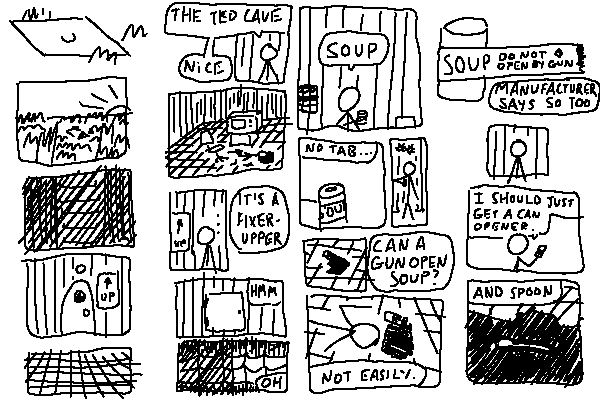 ↑
UP
THE TED CAVE
NICE
↑
UP
IT'S A
FIXER-
UPPER
HMM
OH
SOUP
NO TAB...
SOUP
CAN A
GUN OPEN
SOUP?
NOT EASILY.
SOUP DO NOT
OPEN BY GUN
MANUFACTURER
SAYS SO TOO
I SHOULD JUST
GET A CAN
OPENER...
AND SPOON